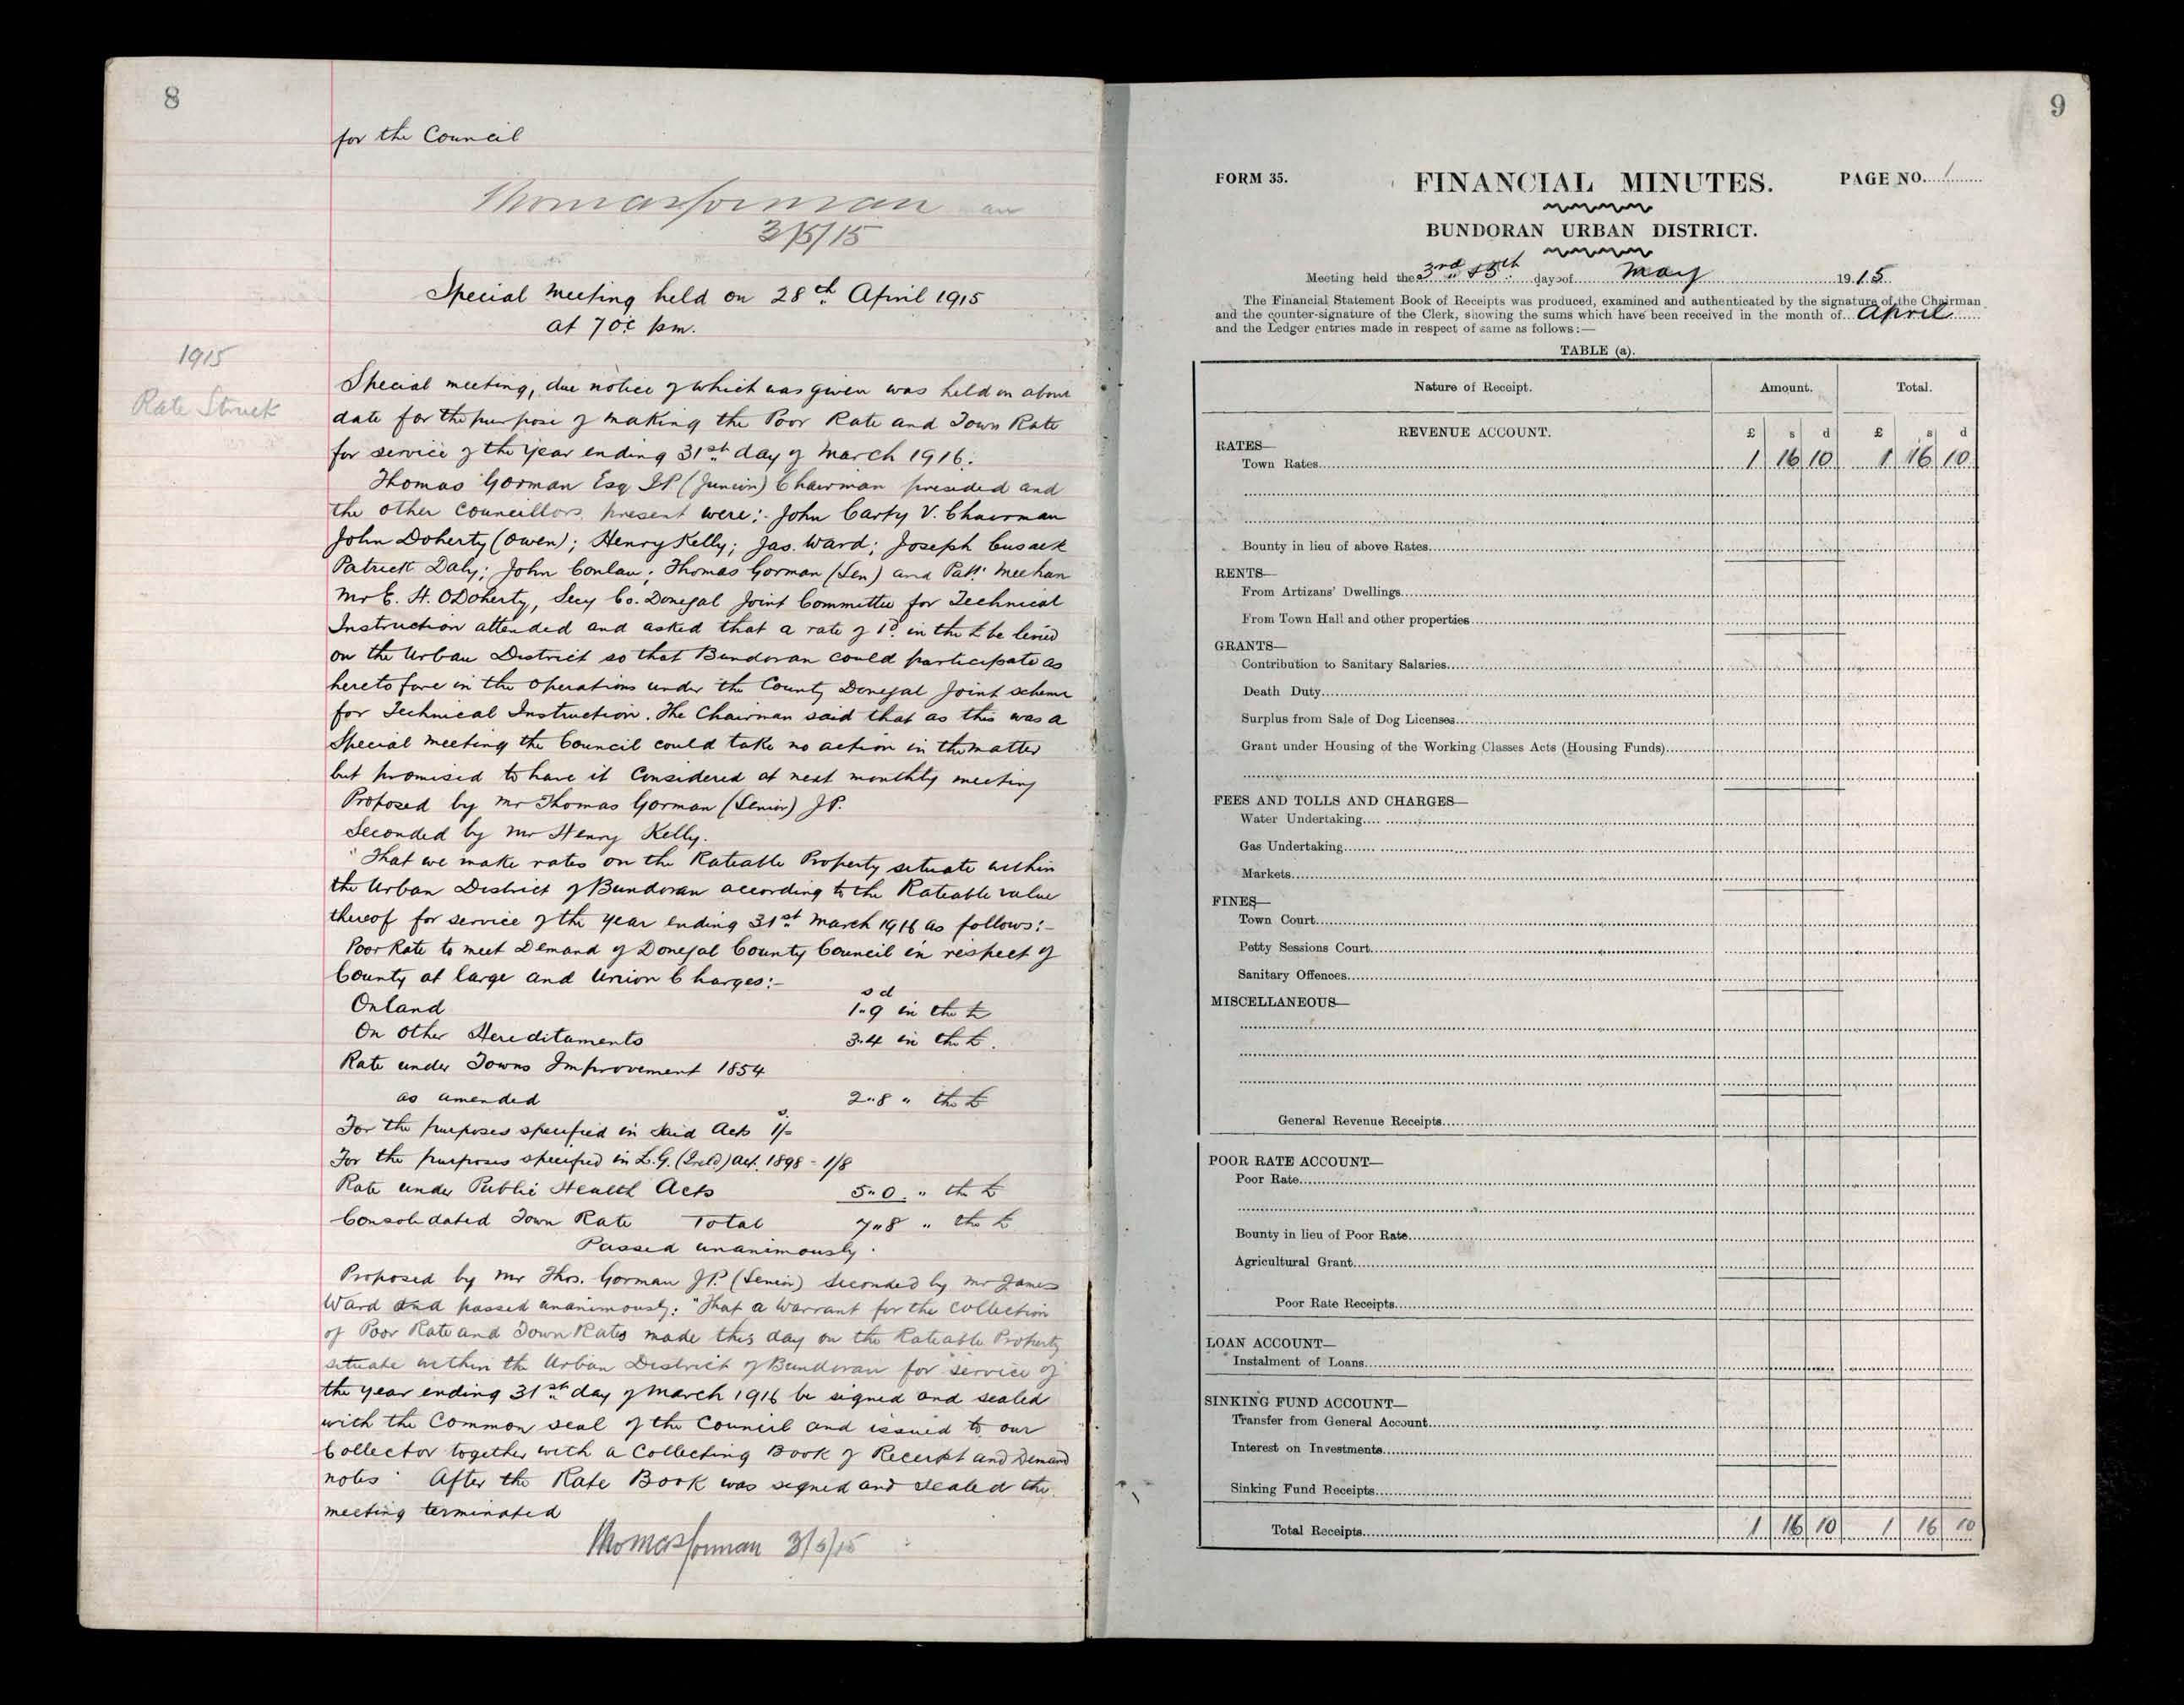 8
for the Council
Thomas Gorman
3/5/15
Special meeting held on 28th April 1915
at 7 oc pm.
1915
Rate Struck
Special meeting, due notice of which was given was held on above
date for the purpose of making the Poor Rate and Town Rate
for service of the year ending 31st day of March 1916.
Thomas Gorman Esq JP (Junior) Chairman presided and
the other Councillors present were:- John Carty V. Chairman
John Doherty (Owen); Henry Kelly; Jas. Ward; Joseph Cusack
Patrick Daly; John Conlan; Thomas Gorman (Sen) and Patk. Meehan
Mr E. H. O'Doherty, Secy Co. Donegal Joint Committee for Technical
Instruction attended and asked that a rate of 1d. in the £ be levied
on the Urban District so that Bundoran could participate as
heretofore in the operations under the County Donegal Joint scheme
for Technical Instruction. The Chairman said that as this was a
Special meeting the Council could take no action in the matter
but promised to have it considered at next monthly meeting
Proposed by Mr Thomas Gorman (Senior) JP.
Seconded by Mr Henry Kelly.
"That we make rates on the Rateable Property situate within
the Urban District of Bundoran according to the Rateable value
thereof for service of the year ending 31st March 1916 as follows:-
Poor Rate to meet Demand of Donegal County Council in respect of
County at large and Union Charges:-
s d
On land 1"9 in the £
On other Hereditaments 3"4 in the £.
Rate under Towns Improvement 1854
as amended 2"8 " the £
For the purposes specified in said Acts 1/-
For the purposes specified in L.G. (Ireld) Act. 1898 - 1/8
Rate under Public Health Acts 5"0. " the £
Consolidated Town Rate Total 7"8 " the £
Passed unanimously.
Proposed by Mr Thos. Gorman JP. (Senior) seconded by Mr James
Ward and passed unanimously: "That a Warrant for the collection
of Poor Rate and Town Rates made this day on the Rateable Property
situate within the Urban District of Bundoran for service of
the year ending 31st day of March 1916 be signed and sealed
with the Common seal of the Council and issued to our
Collector together with a Collecting Book of Receipt and Demand
notes" After the Rate Book was signed and sealed the
meeting terminated
Thomas Gorman 3/5/15
9
FORM 35. FINANCIAL MINUTES. PAGE NO. 1
BUNDORAN URBAN DISTRICT.
Meeting held the 3rd & 5th day of May 1915
The Financial Statement Book of Receipts was produced, examined and authenticated by the signature of the Chairman
and the counter-signature of the Clerk, showing the sums which have been received in the month of April
and the Ledger entries made in respect of same as follows:—
TABLE (a).
Nature of Receipt. Amount. Total.
REVENUE ACCOUNT. £ s d £ s d
RATES—
Town Rates 1 16 10 1 16 10
Bounty in lieu of above Rates
RENTS—
From Artizans' Dwellings
From Town Hall and other properties
GRANTS—
Contribution to Sanitary Salaries
Death Duty
Surplus from Sale of Dog Licenses
Grant under Housing of the Working Classes Acts (Housing Funds)
FEES AND TOLLS AND CHARGES—
Water Undertaking
Gas Undertaking
Markets
FINES—
Town Court
Petty Sessions Court
Sanitary Offences
MISCELLANEOUS—
General Revenue Receipts
POOR RATE ACCOUNT—
Poor Rate
Bounty in lieu of Poor Rate
Agricultural Grant
Poor Rate Receipts
LOAN ACCOUNT—
Instalment of Loans
SINKING FUND ACCOUNT—
Transfer from General Account
Interest on Investments
Sinking Fund Receipts
Total Receipts 1 16 10 1 16 10